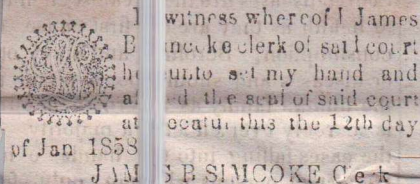 I witness whereof I James
B incckeclerk of sail court
he unto set my hand and
a d the seal of said court
at ecatur this the 12th day
of Jan 1858
JAM S B SIMCOKE C e k